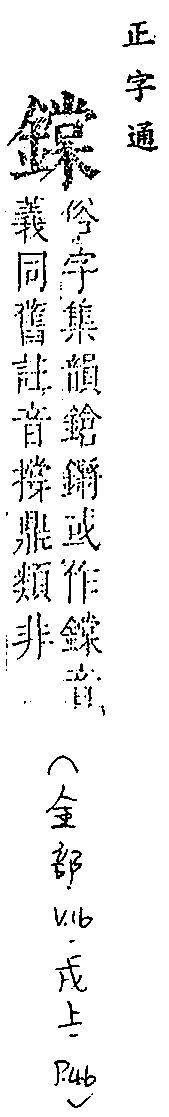 正字通
鏿
俗字集韻鎗鏘或作鏿音
義同舊註音撑鼎類非
(金部 V.16·戌上·P.46)